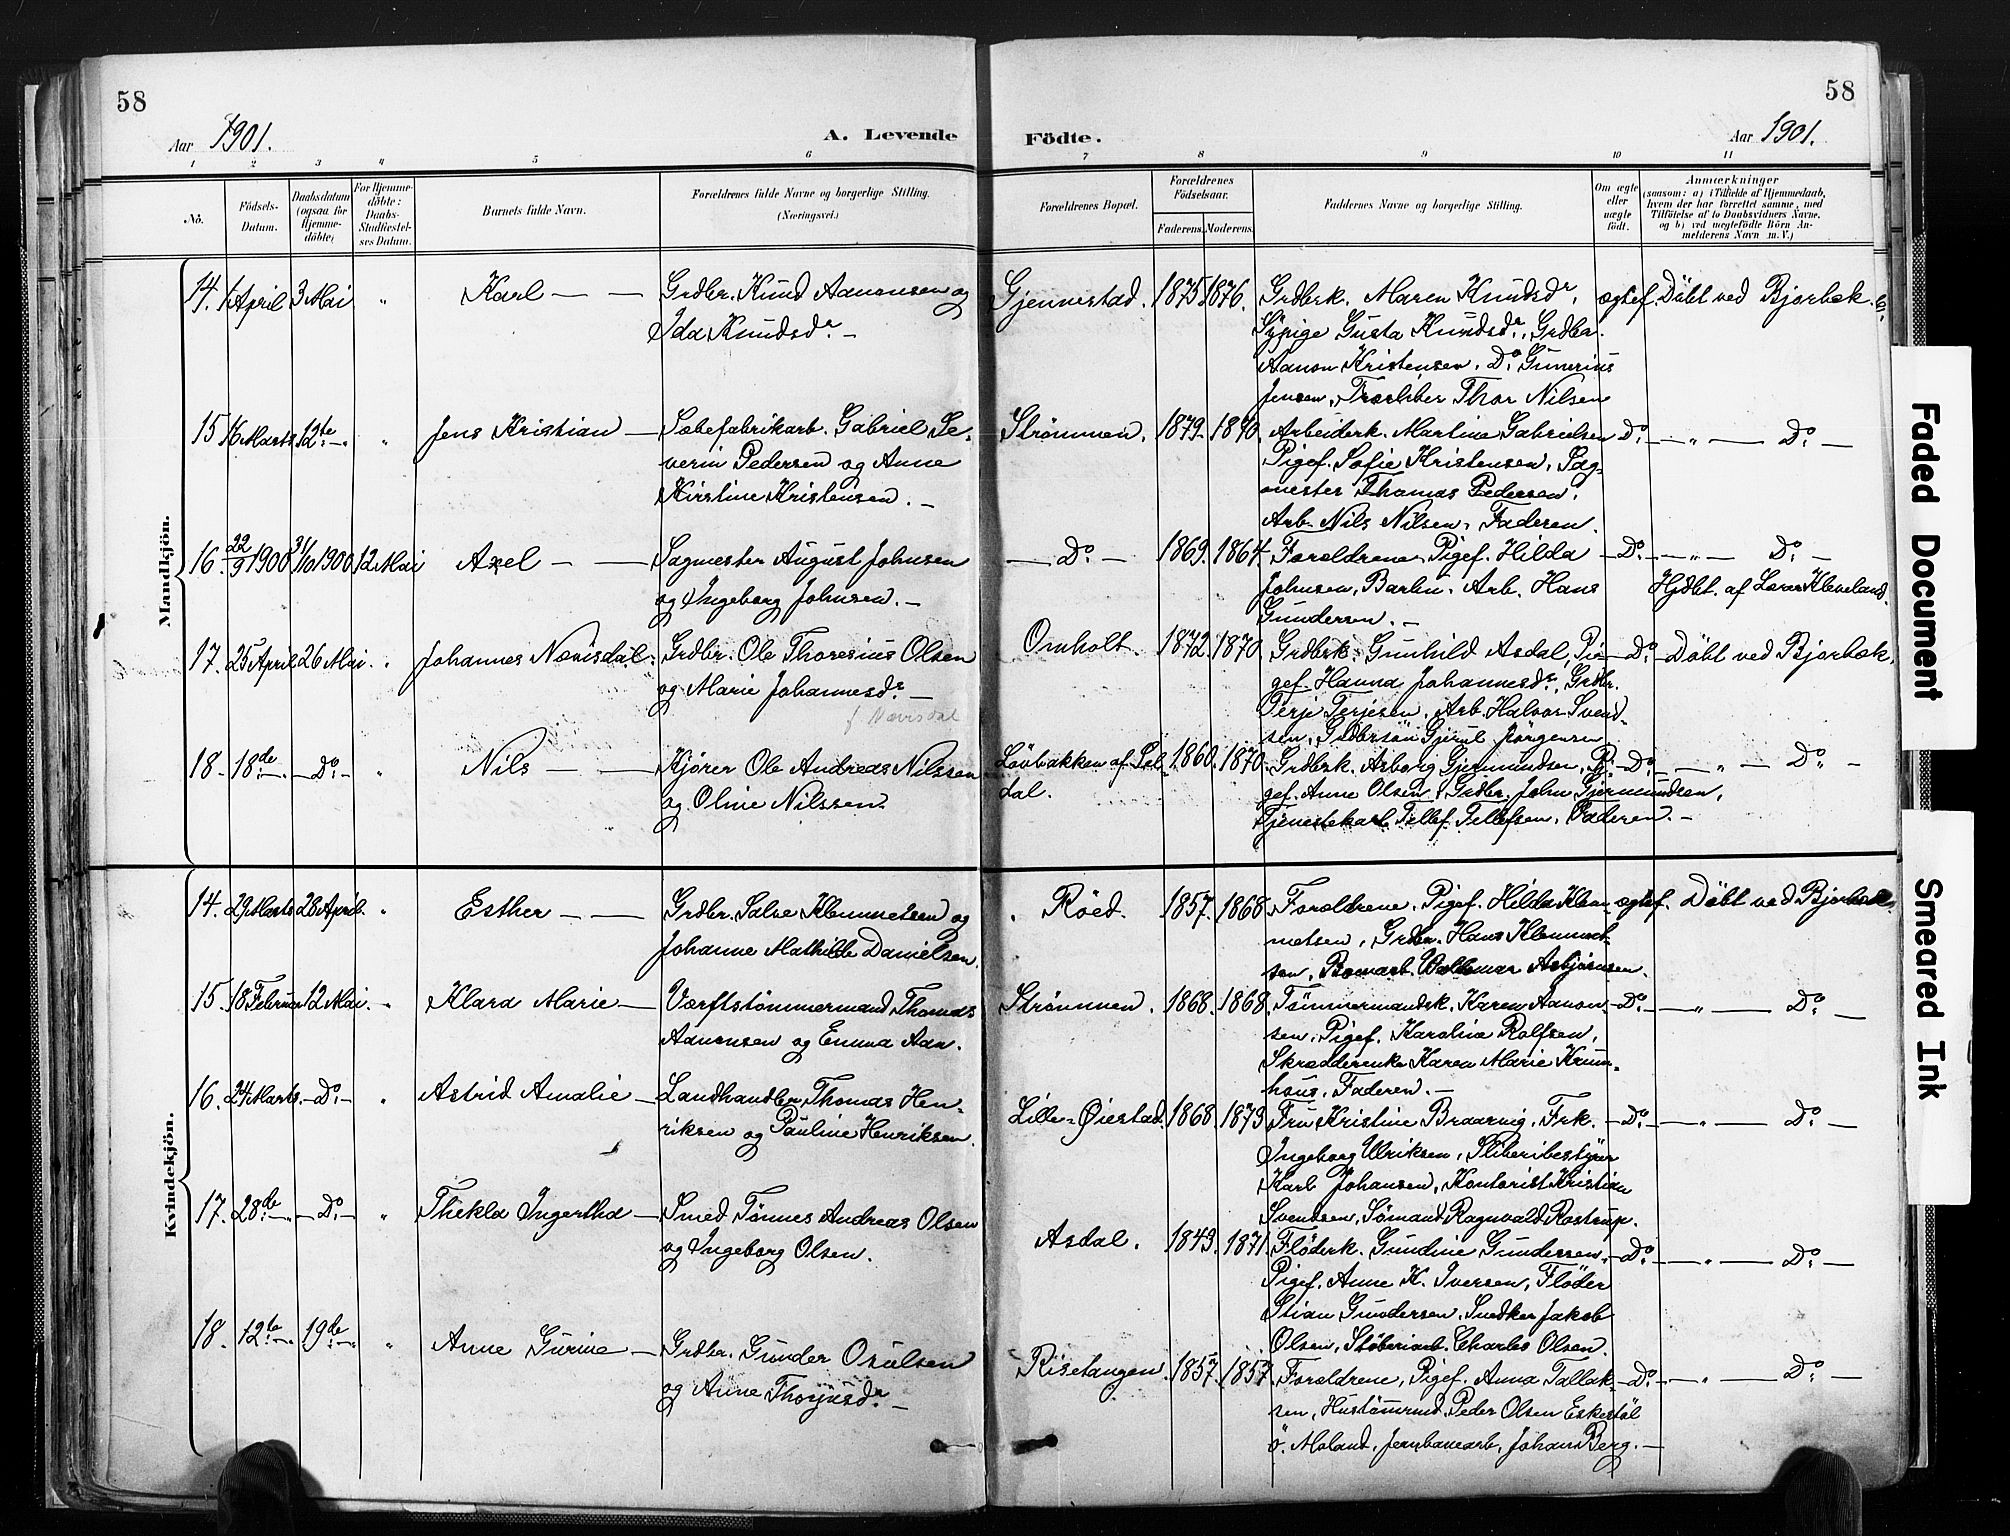 58
58
Aar 1901.
A. Levende
Födte.
Aar 1901.
1 2 3 4 5 6 7 8 9 10 11
No.
Födsels-Datum.
Daabsdatum (ogsaa for Hjemmedöbte)
For Hjemmedöbte: Daabs-Stadfæstelses Datum.
Barnets fulde Navn.
Forældrenes fulde Navne og borgerlige Stilling.
(Næringsvei.)
Forældrenes Bopæl.
Forældrenes Födselsaar.
Faderens.
Moderens.
Faddernes Navne og borgerlige Stilling.
Om ægte eller uægte födt.
Anmærkninger
(saasom: a) i Tilfælde af Hjemmedaab,
hvem der har forrettet samme, med
Tilföielse af to Daabsvidners Navne.
og b) ved uegtefödte Börn An-
melderens Navn m. V.)
Mandkjön.
14. 1 April 3 Mai " Karl — — Grdbr. Knud Aanonsen og
Ida Knudsdr. —
Gjennestad. 1875. 1876. Grdbrk. Maren Knudsdr., ægtef. Döbt ved Bjorbæk
Sypige Gusta Knudsdr., Grdbr.
Aanon Kristensen. Do. Gunerius
Jensen, Thor Nilsen
15 16 Marts 12te — " Jens Kristian — Sæbefabrikarb. Gabriel Se-
verin Pedersen og Anne
Kirstine Kristensen. —
Strømmen. 1879. Arbeiderk. Martine Gabrielsen Do. — " — Do. —
Pigef. Sofie Kristensen, Sag-
mester Thomas Pedersen,
Arb. Nils Nilsen, Faderen.
16. 22/9 1900 31/10 1900 12 Mai Axel — — Sagmester August Johnsen
og Ingeborg Johnsen. —
— Do. — 1869. 1864. Forældrene, Pigef. Hilda — Do. — " — Do. —
Johnsen, Arb. Hans Hjdbt. af Lærer Kleveland.
Gundersen. —
17. 25 April 26 Mai. " Johannes Nævisdal. Grdbr. Ole Thoresius Olsen
og Marie Johannesdr. —
f. Nævisdal
Omholt. 1872. 1870. Grdbrk. Gunhild Asdal, Pi- — Do. — Döbt ved Bjorbæk.
gef. Hanna Johannesdr., Grdbr.
Terje Terjesen, Arb. Halvor Svend-
sen, Grdbrsön Gjerul Jörgensen
18 — 18de — — Do. — " Nils — — Kjörer Ole Andreas Nilssen
og Oline Nilssen.
Lövbakken af Sel-
dal.
1860. 1870. Grdbrk. Asborg Gjermundsen, Pi- — Do. — " — Do. —
gef. Anne Olsen, Grdbr. John Gjermundsen,
Tjenestekarl Tellef Tellefsen, Faderen. —
Kvindekjön.
14. 29 Marts 28 April. " Esther — — Grdbr. Salve Klemmetsen og
Johanne Mathilde Danielsen.
Röed. 1857. 1868. Forældrene, Pigef. Hilda Klem- ægtef. Döbt ved Bjorbæk.
metsen, Grdbr. Hans Klemmet-
sen, Bomarb. Waldemar Asbjörnsen.
15. 18 Februar 12 Mai. " Klara Marie — Værftstömmermand Thomas
Aanonsen og Emma Aan.
Strømmen. 1868. 1868. Tömmermandsk. Karen Aanon- — Do. — " — Do. —
sen, Pigef. Karoline Rolfsen,
Skrædderenke Karen Marie Krum-
haus, Faderen. —
16. 24 Marts. — Do. — " Astrid Amalie — Landhandler Thomas Hen-
riksen og Pauline Henriksen.
Lille-Øiestad. 1868. 1873. Fru Kristine Braarvig, Frk. — Do. — " — Do. —
Ingeborg Ulriksen, Sliberibestyrer
Karl Johansen, Kontorist Kristian
Svendsen, Sömand Ragnvald Rostrup.
17. 28de — — Do. — " Thekla Ingertha — Smed Tönnes Andreas Olsen
og Ingeborg Olsen.
Asdal. 1843. 1871. Flöderk. Gundine Gundersen, — Do. — " — Do. —
Pigef. Anne K. Iversen, Flöder
Stian Gundersen, Snedker Jakob
Olsen, Stöberiarb. Charles Olsen.
18. 12te — 19de — " Anne Gurine — Grdbr. Gunder Osulsen
og Anne Thorjusdr. —
Risetangen. 1857. 1857. Forældrene, Pigef. Anna Tallak- — Do. — " — Do. —
sen, Hustömrmd. Peder Olsen Eskestöl
ö. Moland, Jernbanearb. Johan Berg. —
Faded Document
Smeared Ink